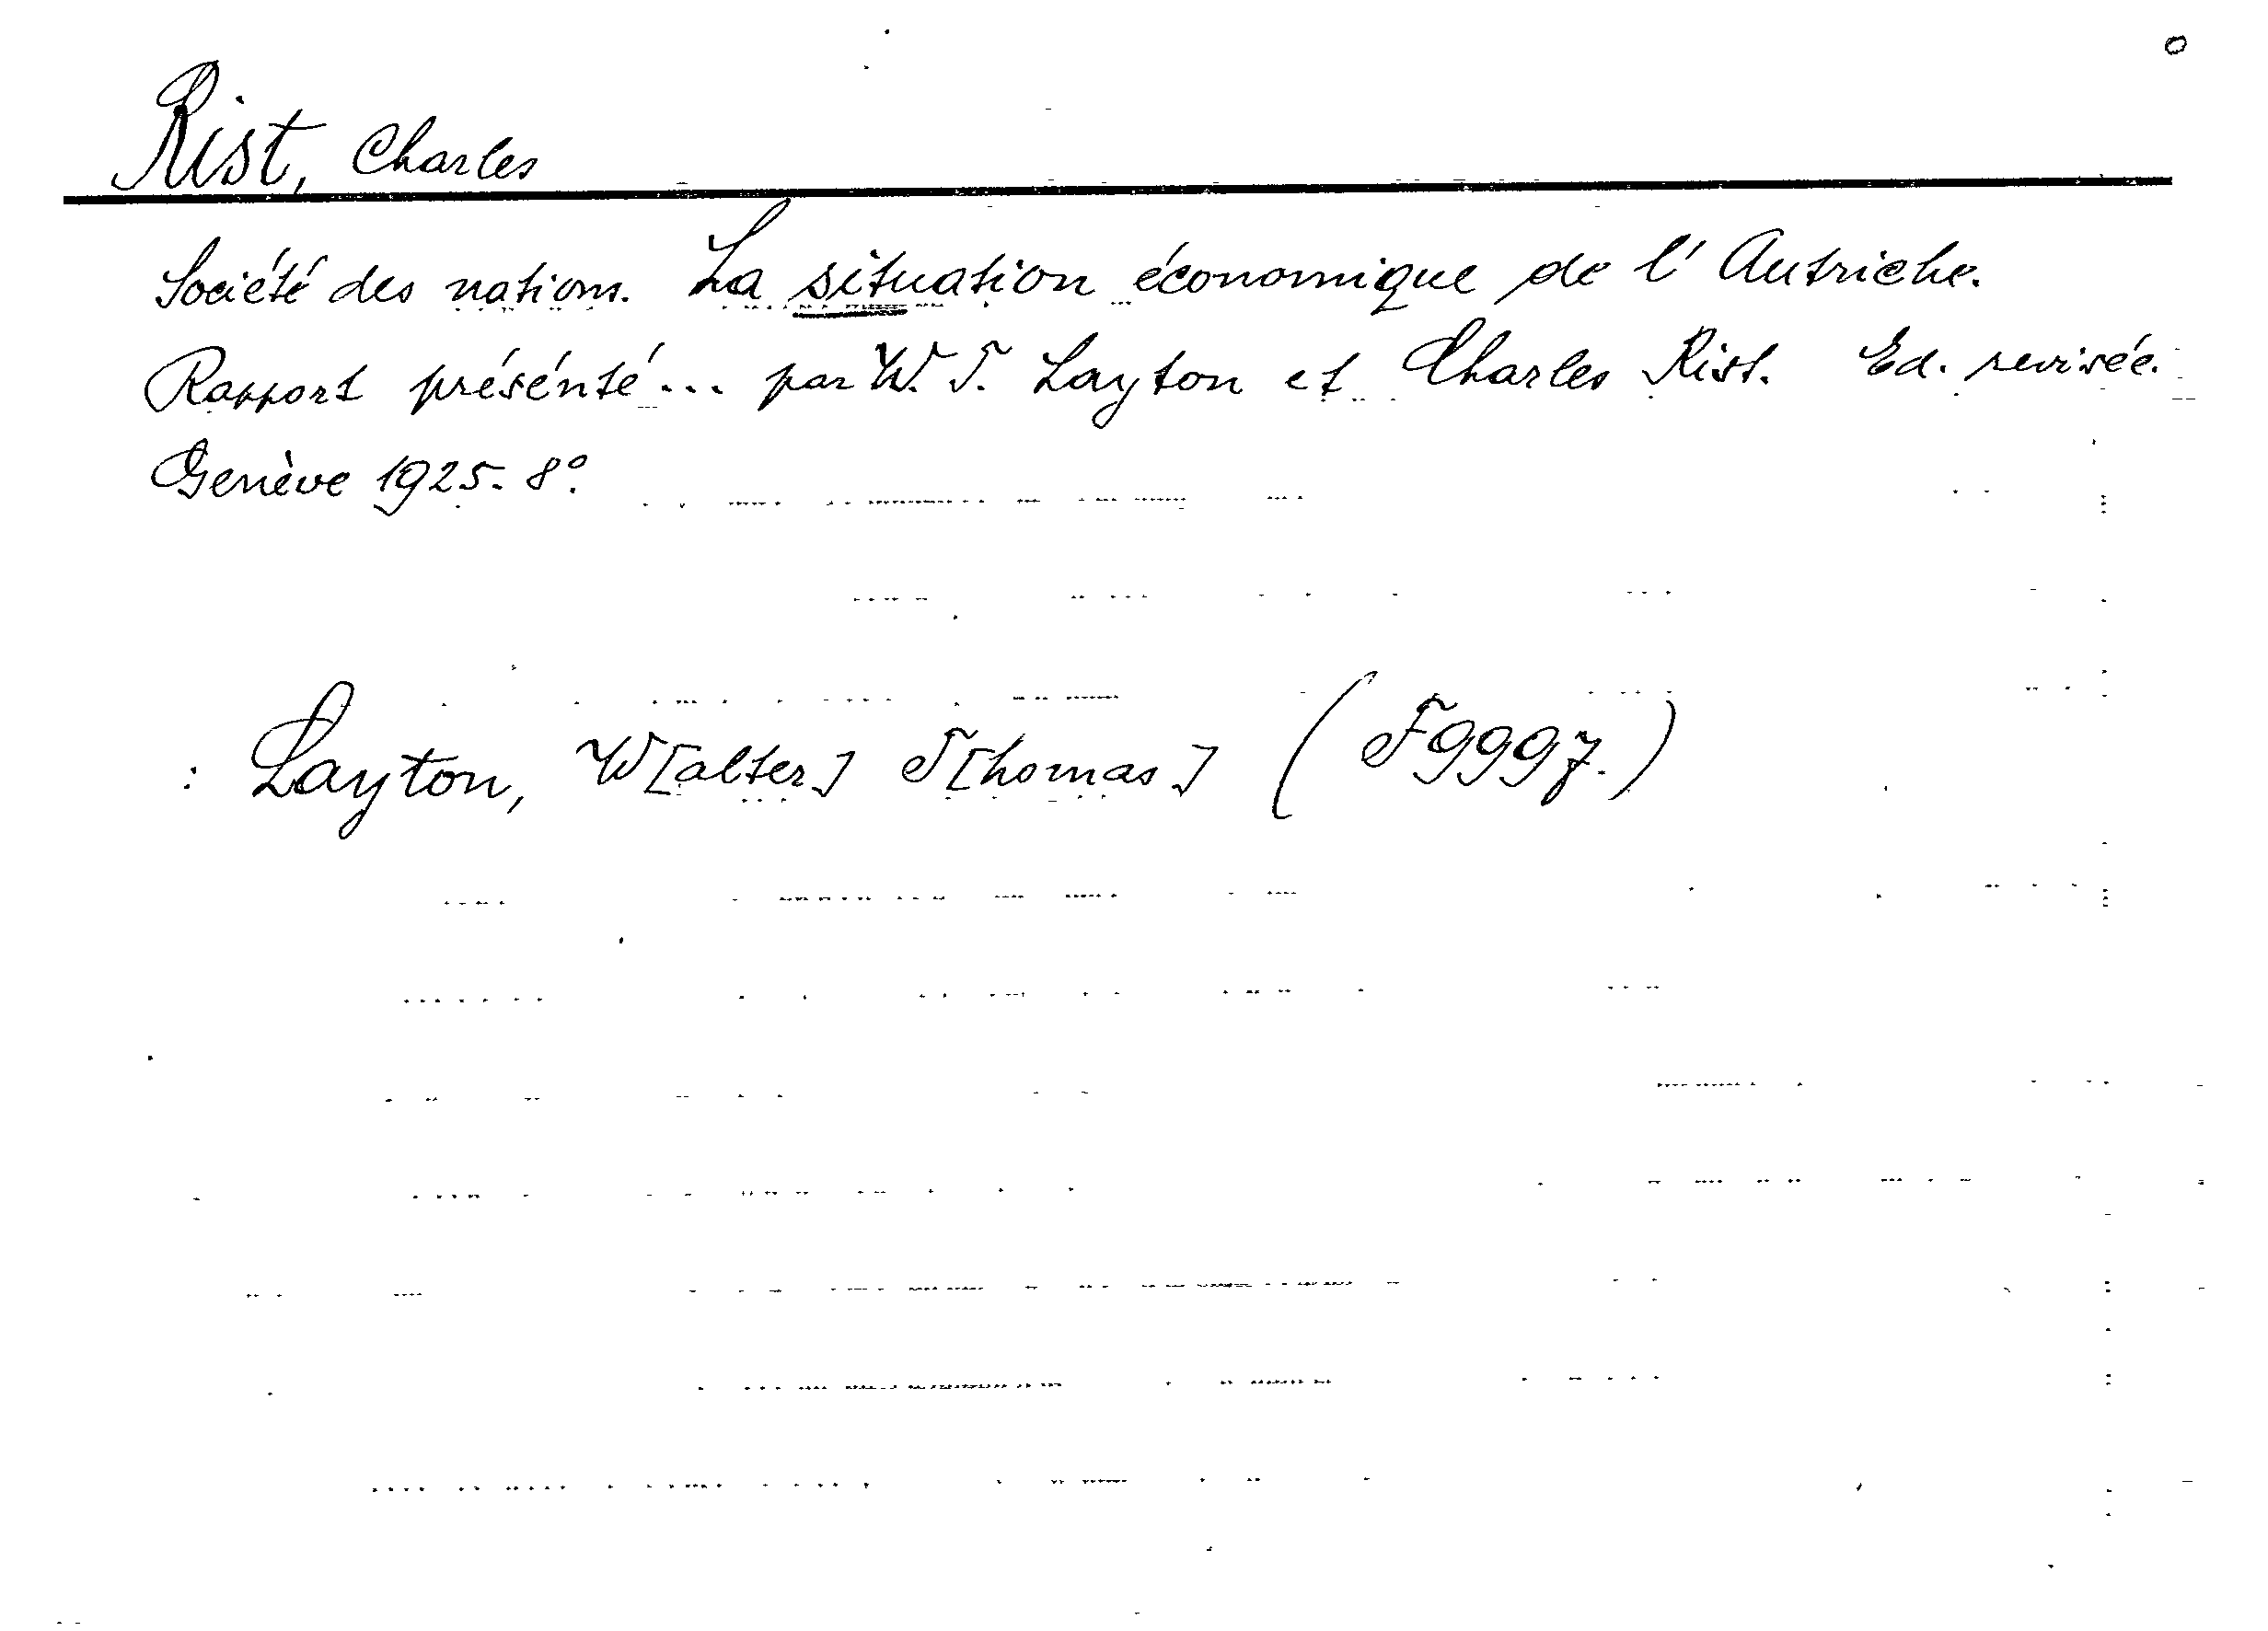 Rist, Charles
Société des nations. La situation économique de l'Autriche.
Rapport présénté... par W. T. Layton et Charles Rist. Ed. revisée.
Genève 1925. 8°.
: Layton, W[alter] T[homas] (F9997.)